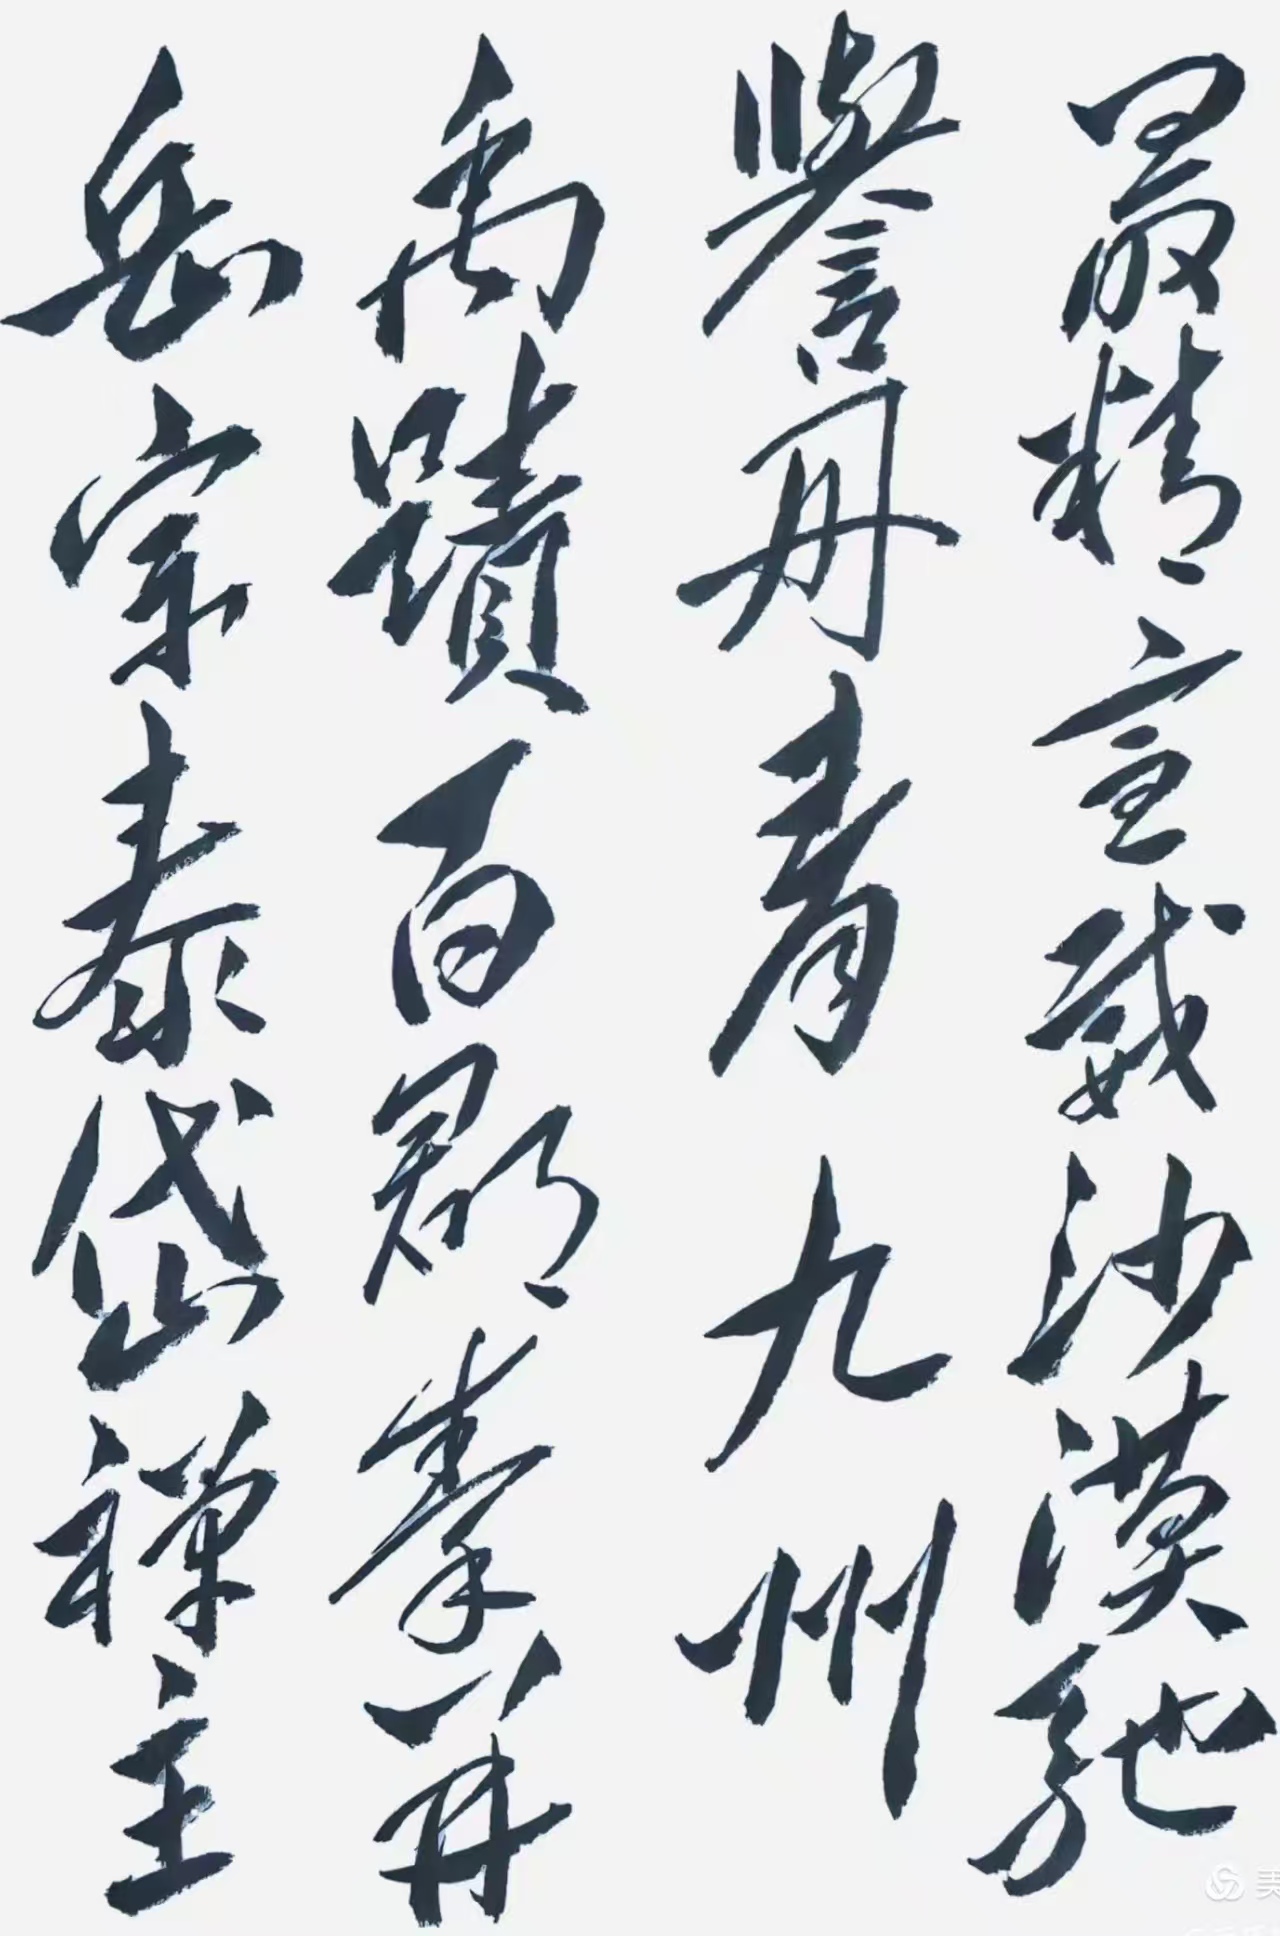 最精宣威沙漠馳
譽丹青九州
禹蹟百郡秦并
岳宗泰岱禪主
美